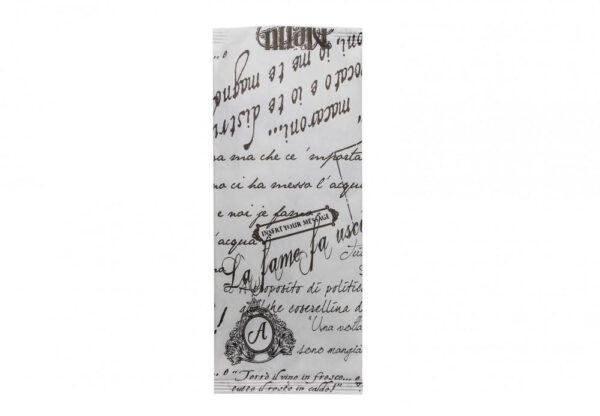 macaroni...
vocato e io te distru
oni, io me te magno
na ma che ce 'mporta
no ci ha messo l'acqua
e noi je famo
INSERT YOUR MESSAGE
acqua
La fame fa usc
A proposito di politic
alche coserellina d
"Una volta
sono mangia
A
"Terrò il vino in fresco... e
tutto il resto in caldo!"